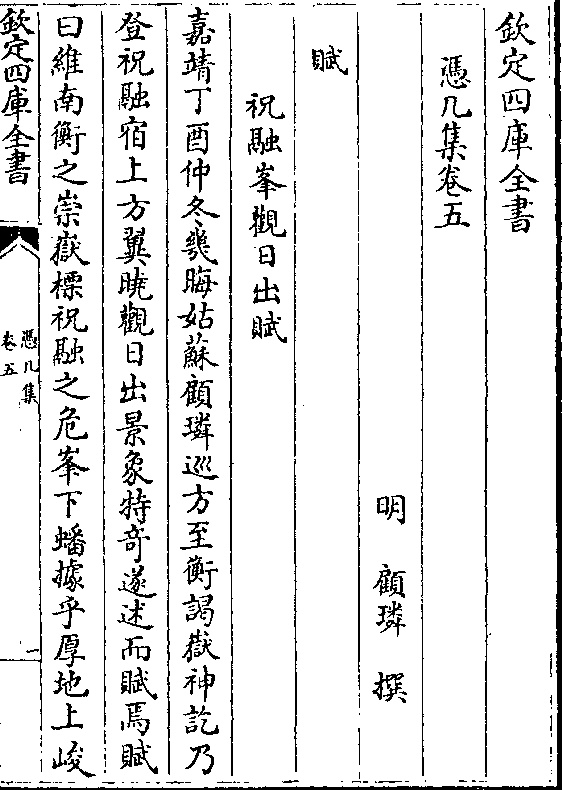 欽定四庫全書
憑几集卷五
明 顧璘 撰
賦
祝融峯觀日出賦
嘉靖丁酉仲冬幾晦姑蘇顧璘巡方至衡謁嶽神訖乃
登祝融宿上方翼曉觀日出景象特奇遂述而賦焉賦
曰維南衡之崇嶽標祝融之危峯下蟠據乎厚地上峻
欽定四庫全書
憑几集
卷五
一